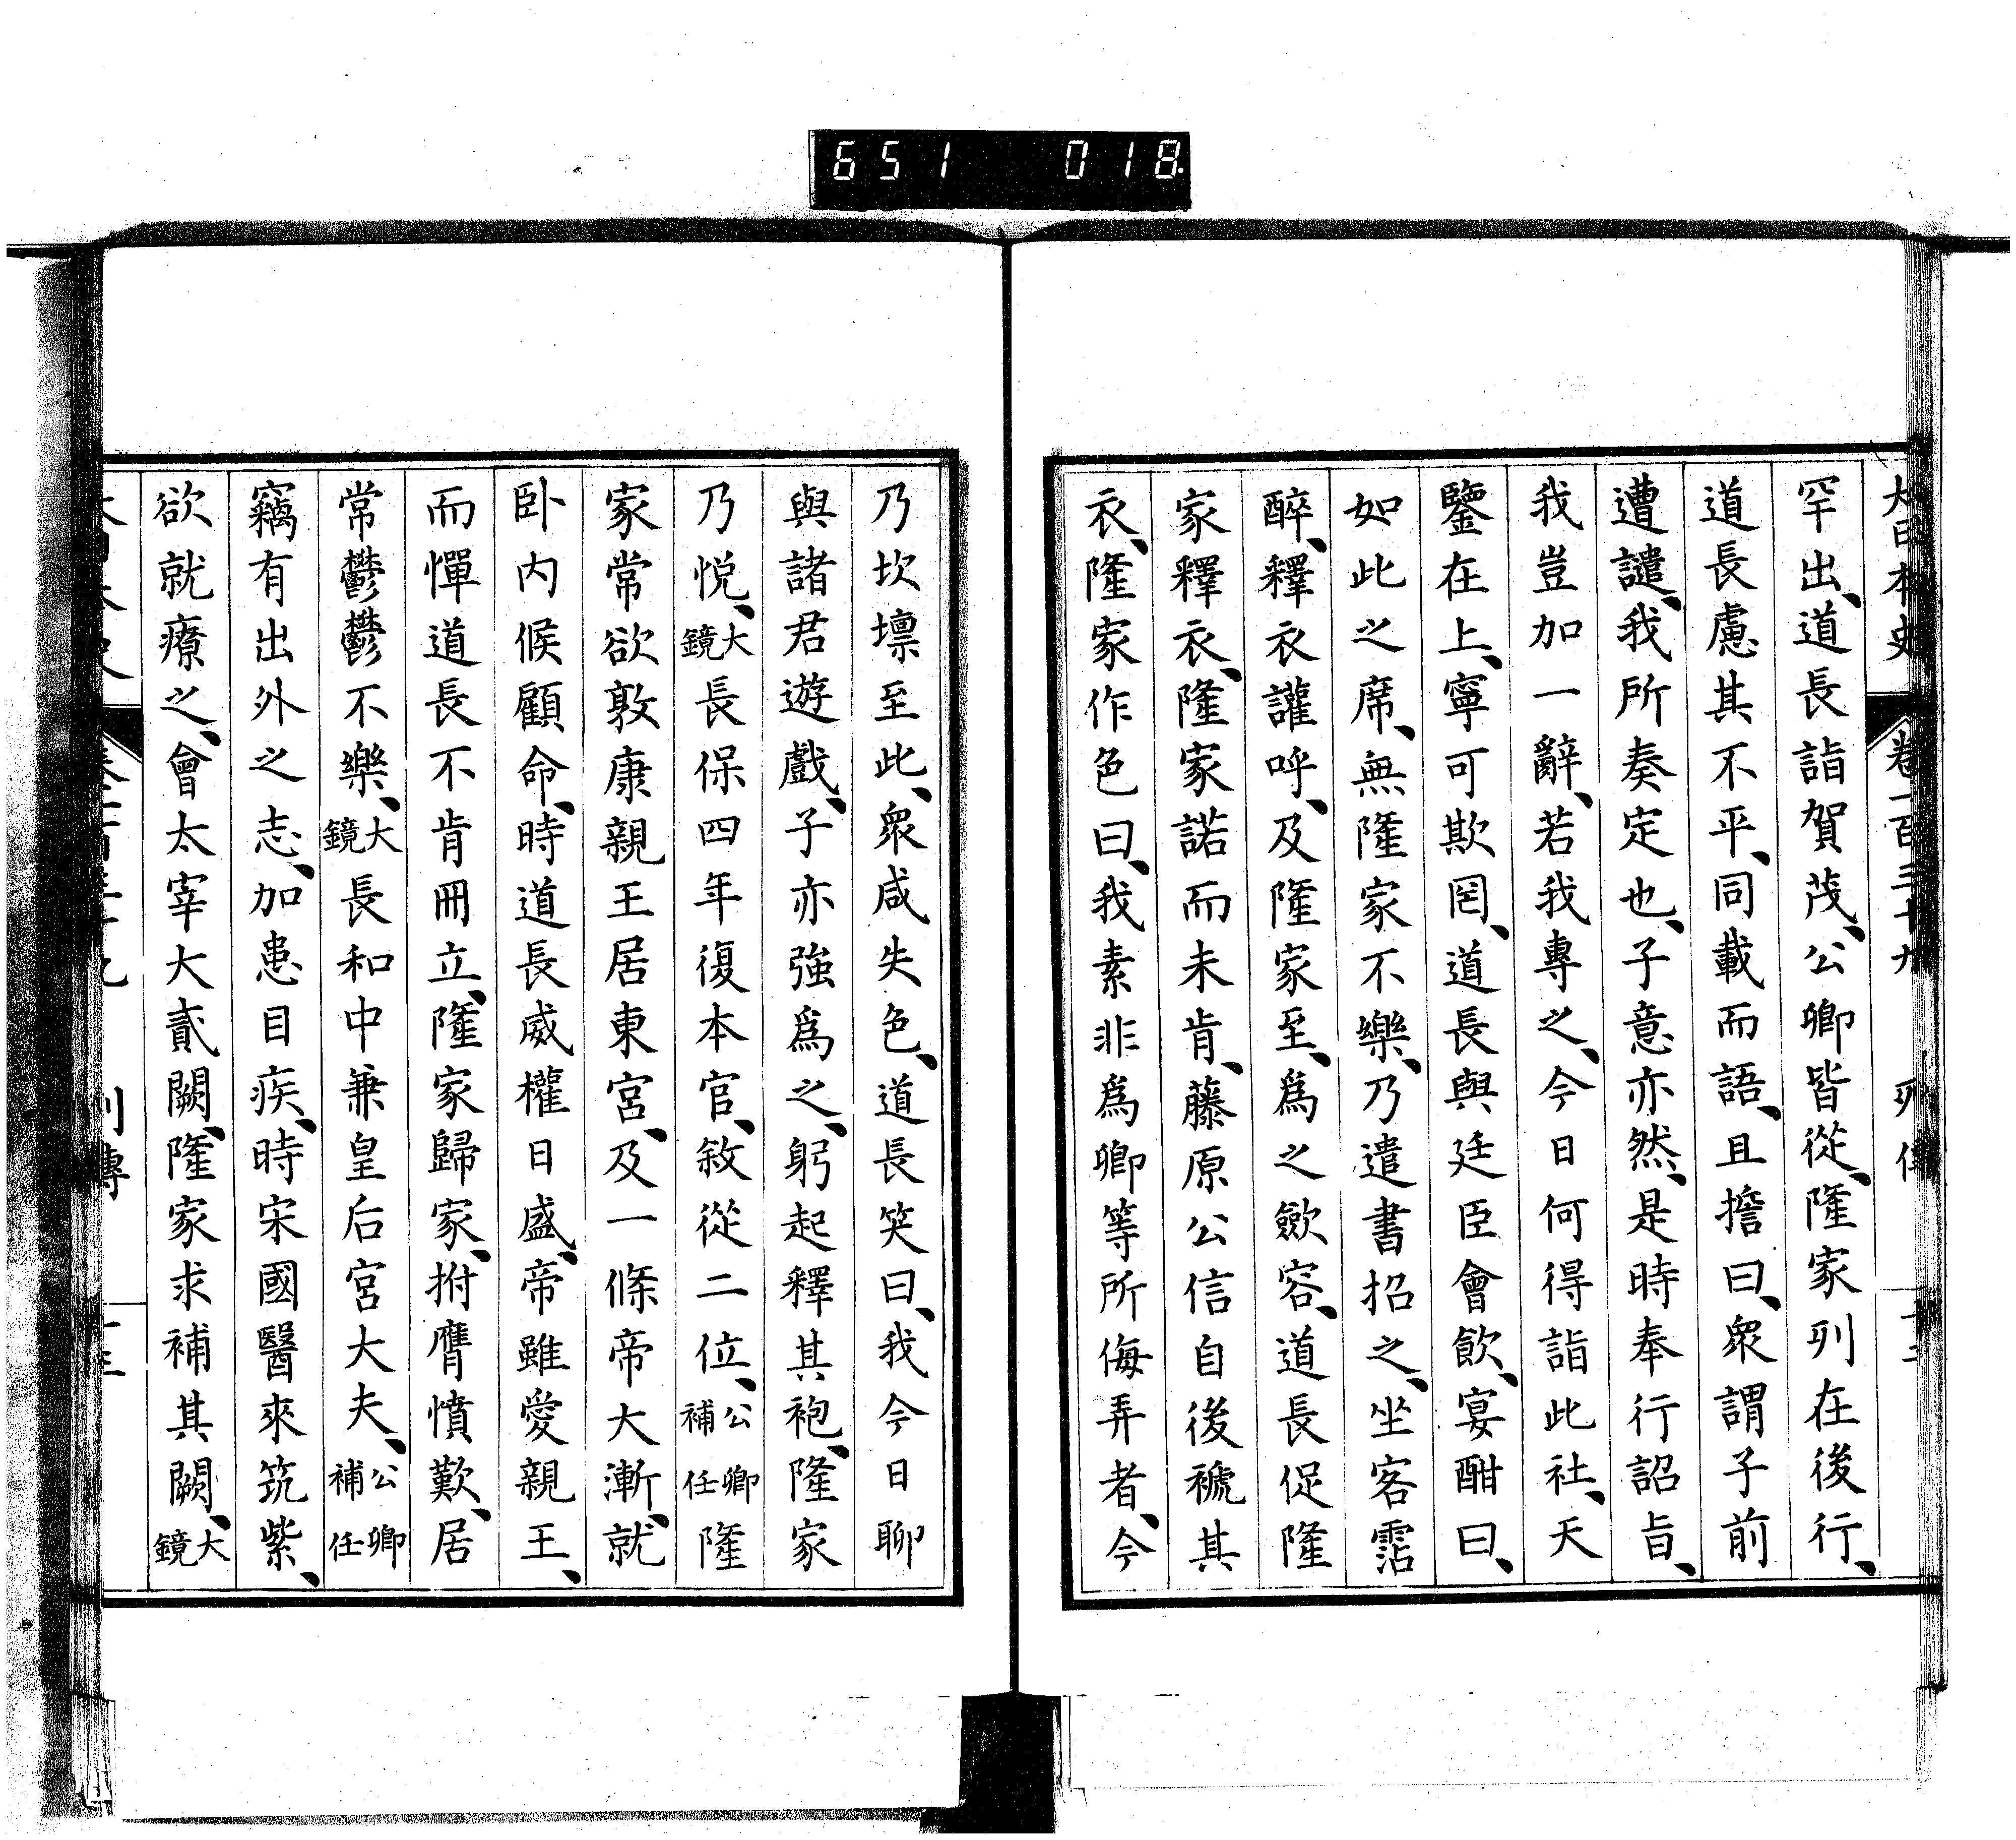 651 018
大日本史 卷一百三十九 列傳 十二
罕出、道長詣賀茂、公卿皆從、隆家列在後行、
道長慮其不平、同載而語、且擔曰、衆謂子前
遭譴、我所奏定也、子意亦然、是時奉行詔旨、
我豈加一辭、若我專之、今日何得詣此社、天
鑒在上、寧可欺罔、道長與廷臣會飮、宴酣曰、
如此之席、無隆家不樂、乃遣書招之、坐客霑
醉、釋衣讙呼、及隆家至、爲之歛容、道長促隆
家釋衣、隆家諾而未肯、藤原公信自後褫其
衣、隆家作色曰、我素非爲卿等所侮弄者、今
乃坎壈至此、衆咸失色、道長笑曰、我今日聊
與諸君遊戲、子亦強爲之、躬起釋其袍、隆家
乃悅、大鏡長保四年復本官、敘從二位、公卿補任隆
家常欲敦康親王居東宮、及一條帝大漸、就
卧内候顧命、時道長威權日盛、帝雖愛親王、
而憚道長不肯冊立、隆家歸家、拊膺憤歎、居
常鬱鬱不樂、大鏡長和中兼皇后宮大夫、公卿補任
竊有出外之志、加患目疾、時宋國醫來筑紫、
欲就療之、會太宰大貳闕、隆家求補其闕、大鏡
列傳